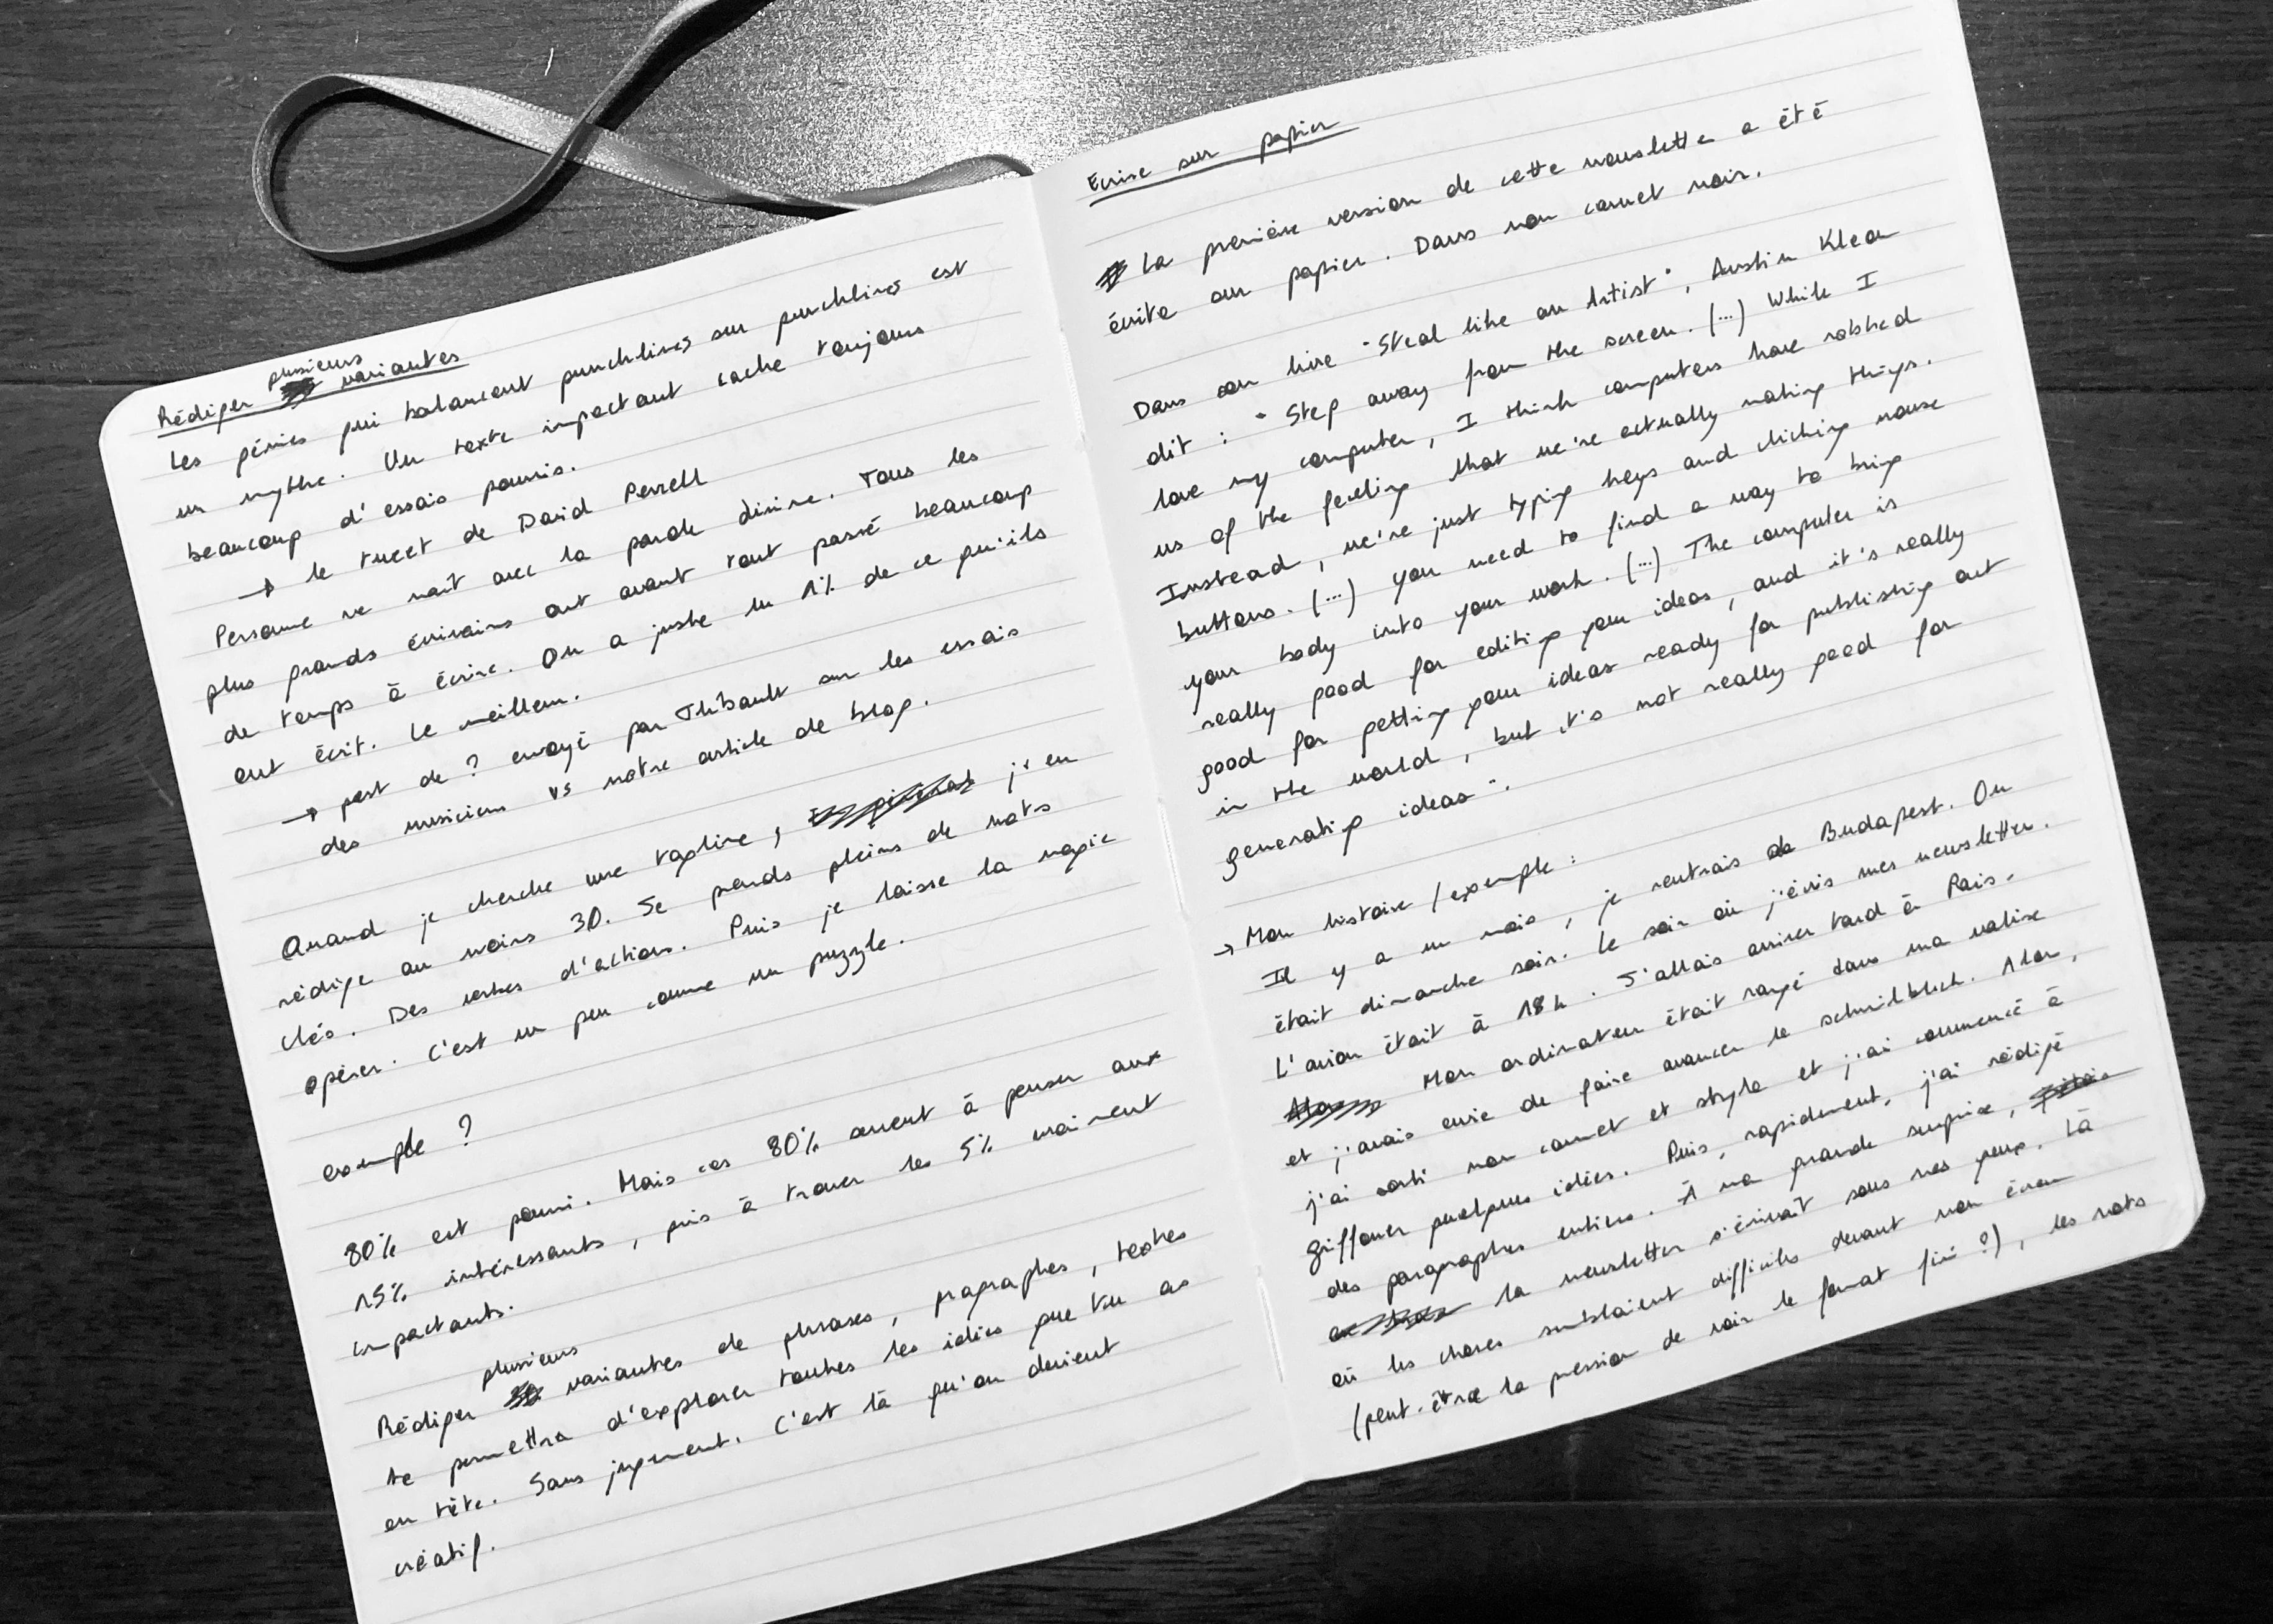 Rédiger plusieurs variantes
Les génies qui balancent punchlines sur punchlines est
un mythe. Un texte impactant cache toujours
beaucoup d'essais pourris.
→ le tweet de David Perell
Personne ne naît avec la parole divine. Tous les
plus grands écrivains ont avant tout passé beaucoup
de temps à écrire. On a juste lu 1% de ce qu'ils
ont écrit. Le meilleur.
→ post de ? envoyé par Thibault sur les essais
des musiciens vs notre article de blog.
Quand je cherche une tagline, j'en
rédige au moins 30. Je prends pleins de mots
clés. Des verbes d'actions. Puis je laisse la magie
opérer. C'est un peu comme un puzzle.
exemple ?
80% est pourri. Mais ces 80% servent à penser aux
15% intéressants, puis à trouver les 5% vraiment
impactants.
Rédiger plusieurs variantes de phrases, pragraphes, textes
te permettra d'explorer toutes les idées que tu as
en tête. Sans jugement. C'est là qu'on devient
créatif.
Ecrire sur papier
La première version de cette newslette a été
écrite sur papier. Dans mon carnet noir.
Dans son livre "Steal like an Artist", Austin Kleon
dit : "Step away from the screen. (...) While I
love my computer, I think computers have robbed
us of the feeling that we're actually making things.
Instead, we're just typing keys and clicking mouse
buttons. (...) you need to find a way to bring
your body into your work. (...) The computer is
really good for editing your ideas, and it's really
good for getting your ideas ready for publishing out
in the world, but it's not really good for
generating ideas".
→ Mon histoire / exemple :
Il y a un mois, je rentrais de Budapest. On
était dimanche soir. Le soir où j'écris mes newsletter.
L'avion était à 18h. J'allais arriver tard à Paris.
Mon ordinateur était rangé dans ma valise
et j'avais envie de faire avancer le schmilblick. Alors,
j'ai sorti mon carnet et stylo et j'ai commencé à
griffoner quelques idées. Puis, rapidement, j'ai rédigé
des paragraphes entiers. À ma grande surprise,
la newsletter s'écrivait sous mes yeux. Là
où les choses semblaient difficiles devant mon écran
(peut-être la pression de voir le format fini ?), les mots